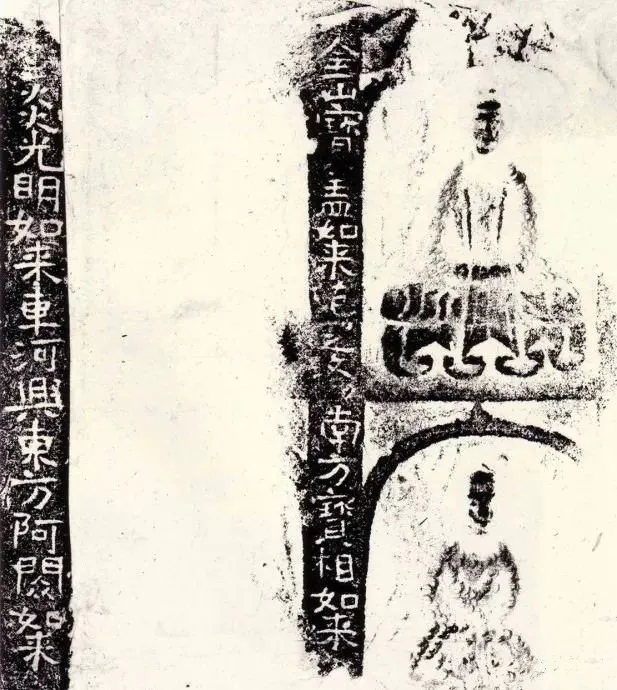 金山寶盖如来南方寶相如来
炎光明如来車河興東方阿閦如来